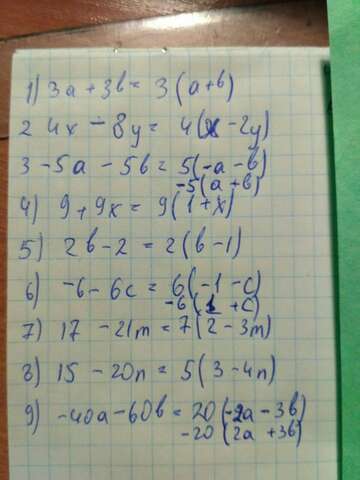 1) 3a + 3b = 3(a+b)
2 4x - 8y = 4(x - 2y)
3 -5a - 5b = 5(-a - b)
-5(a + b)
4) 9 + 9x = 9(1 + x)
5) 2b - 2 = 2(b - 1)
6) -6 - 6c = 6(-1 - c)
-6(1 + c)
7) 17 - 21m = 7(2 - 3m)
8) 15 - 20n = 5(3 - 4n)
9) -40a - 60b = 20(-2a - 3b)
-20(2a + 3b)